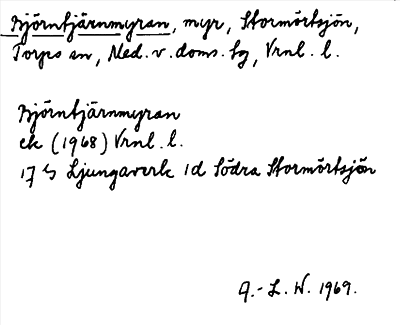 Björntjärnmyran, myr, Stormörtsjön,
Torps sn, Med. v. doms. sg, Vrnl. l.
Björntjärnmyran
ek (1968) Vrnl. l.
17 G Ljungaverk 1d Södra Stormörtsjön
A.-L. W. 1969.